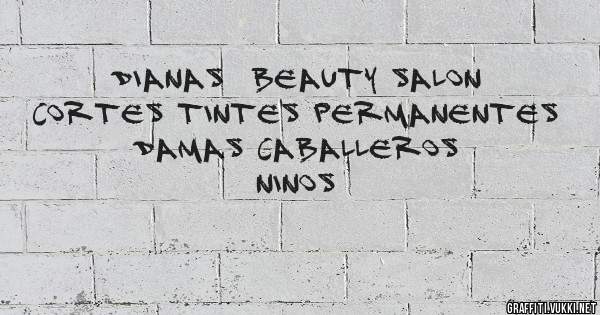 DIANAS BEAUTY SALON
CORTES TINTES PERMANENTES
DAMAS CABALLEROS
NINOS
GRAFFITI.YUKKI.NET